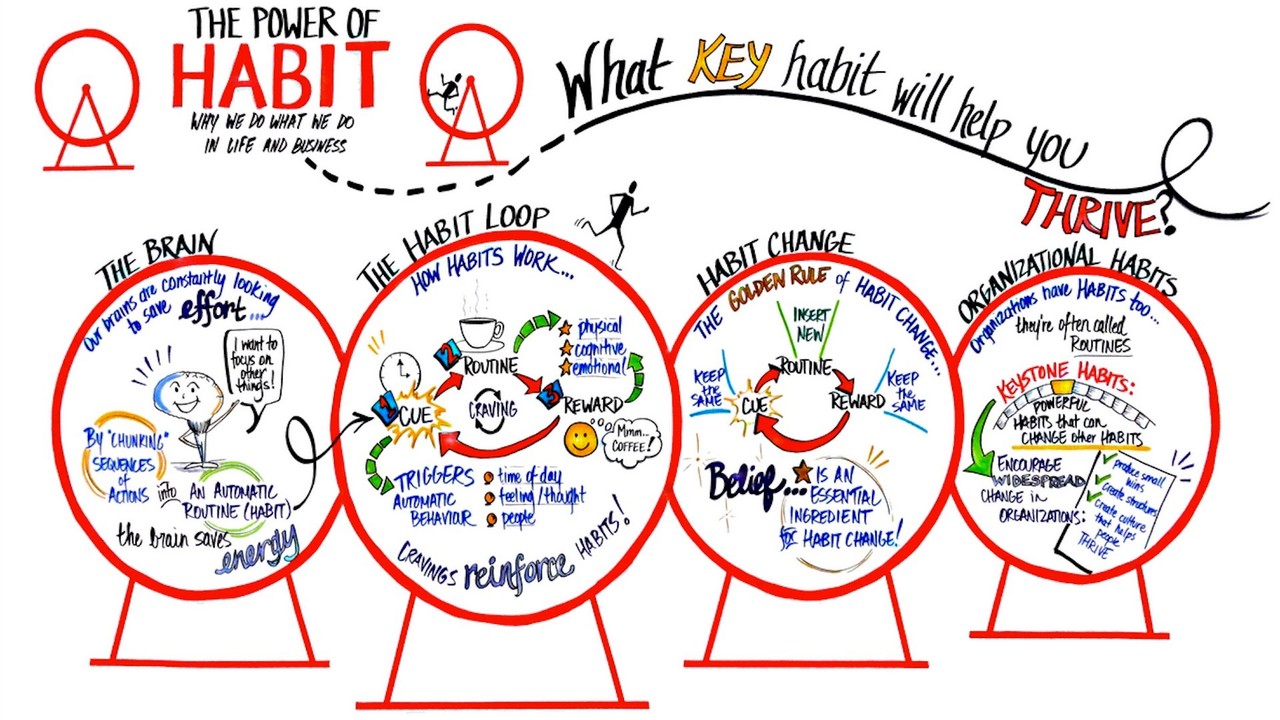 THE POWER OF
HABIT
WHY WE DO WHAT WE DO
IN LIFE AND BUSINESS
What KEY habit will help you
THRIVE?
THE BRAIN
Our brains are constantly looking
to save effort...
I want to
focus on
other
things!
BY "CHUNKING"
SEQUENCES
of
ACTIONS
into
AN AUTOMATIC
ROUTINE (HABIT)
the brain saves
energy
THE HABIT LOOP
HOW HABITS WORK...
1
CUE
2
ROUTINE
3
REWARD
CRAVING
physical
cognitive
emotional
Mmm..
COFFEE!
TRIGGERS
AUTOMATIC
BEHAVIOUR
time of day
feeling/thought
people
CRAVINGS reinforce HABITS!
HABIT CHANGE
THE GOLDEN RULE of HABIT CHANGE...
INSERT
NEW
ROUTINE
KEEP
the
SAME
CUE
REWARD
KEEP
the
SAME
Belief... IS AN
ESSENTIAL
INGREDIENT
for HABIT CHANGE!
ORGANIZATIONAL HABITS
Organizations have HABITS too...
they're often called
ROUTINES
KEYSTONE HABITS:
POWERFUL
HABITS that can
CHANGE other HABITS
ENCOURAGE
WIDESPREAD
CHANGE in
ORGANIZATIONS:
produce small
wins
create structures
create culture
that helps
people
THRIVE